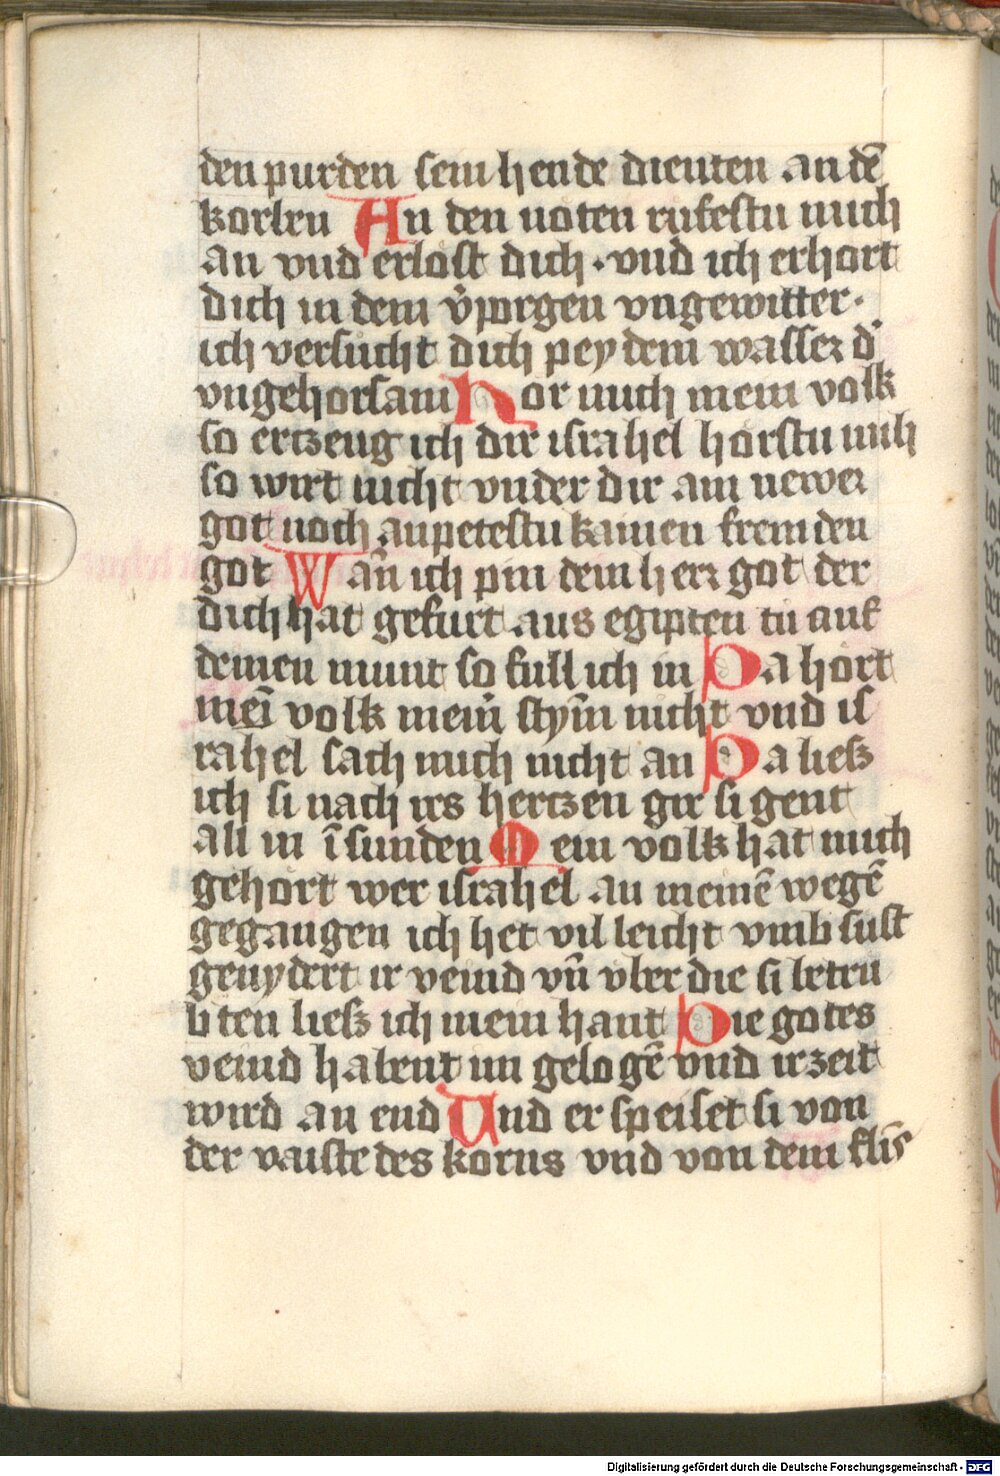 den purden sein hende dienten an dē
korben An den noten rufestu mich
an vnd erlost dich · vnd ich erhort
dich in dem v̉porgen vngewitter ·
ich versucht dich pey dem wasser d̉
vngehorsam Hor mich mein volk
so ertzeug ich dir israhel horstu mih
so wirt nicht vnder dir ain newer
got noch anpetestu kainen fremden
got Wan̄ ich pin dein herr got der
dich hat gefurt aus egipten tu auf
deinen munt so full ich in Da hort
mei̅ volk mein̉ stym̄ nicht vnd is
rahel sach mich nicht an Da liesz
ich si nach irs hertzen gir si gent
all in i̅ sunden Mein volk hat mich
gehort wer israhel an meinē wegē
gegangen ich het villeicht vmb sust
genydert ir veind vn̄ vber die si betru
bten liesz ich mein hant Die gotes
veind habent im gelogē vnd ir zeit
wird an end Und er speiset si von
der vaiste des korns vnd von dem flīs
Digitalisierung gefördert durch die Deutsche Forschungsgemeinschaft - DFG